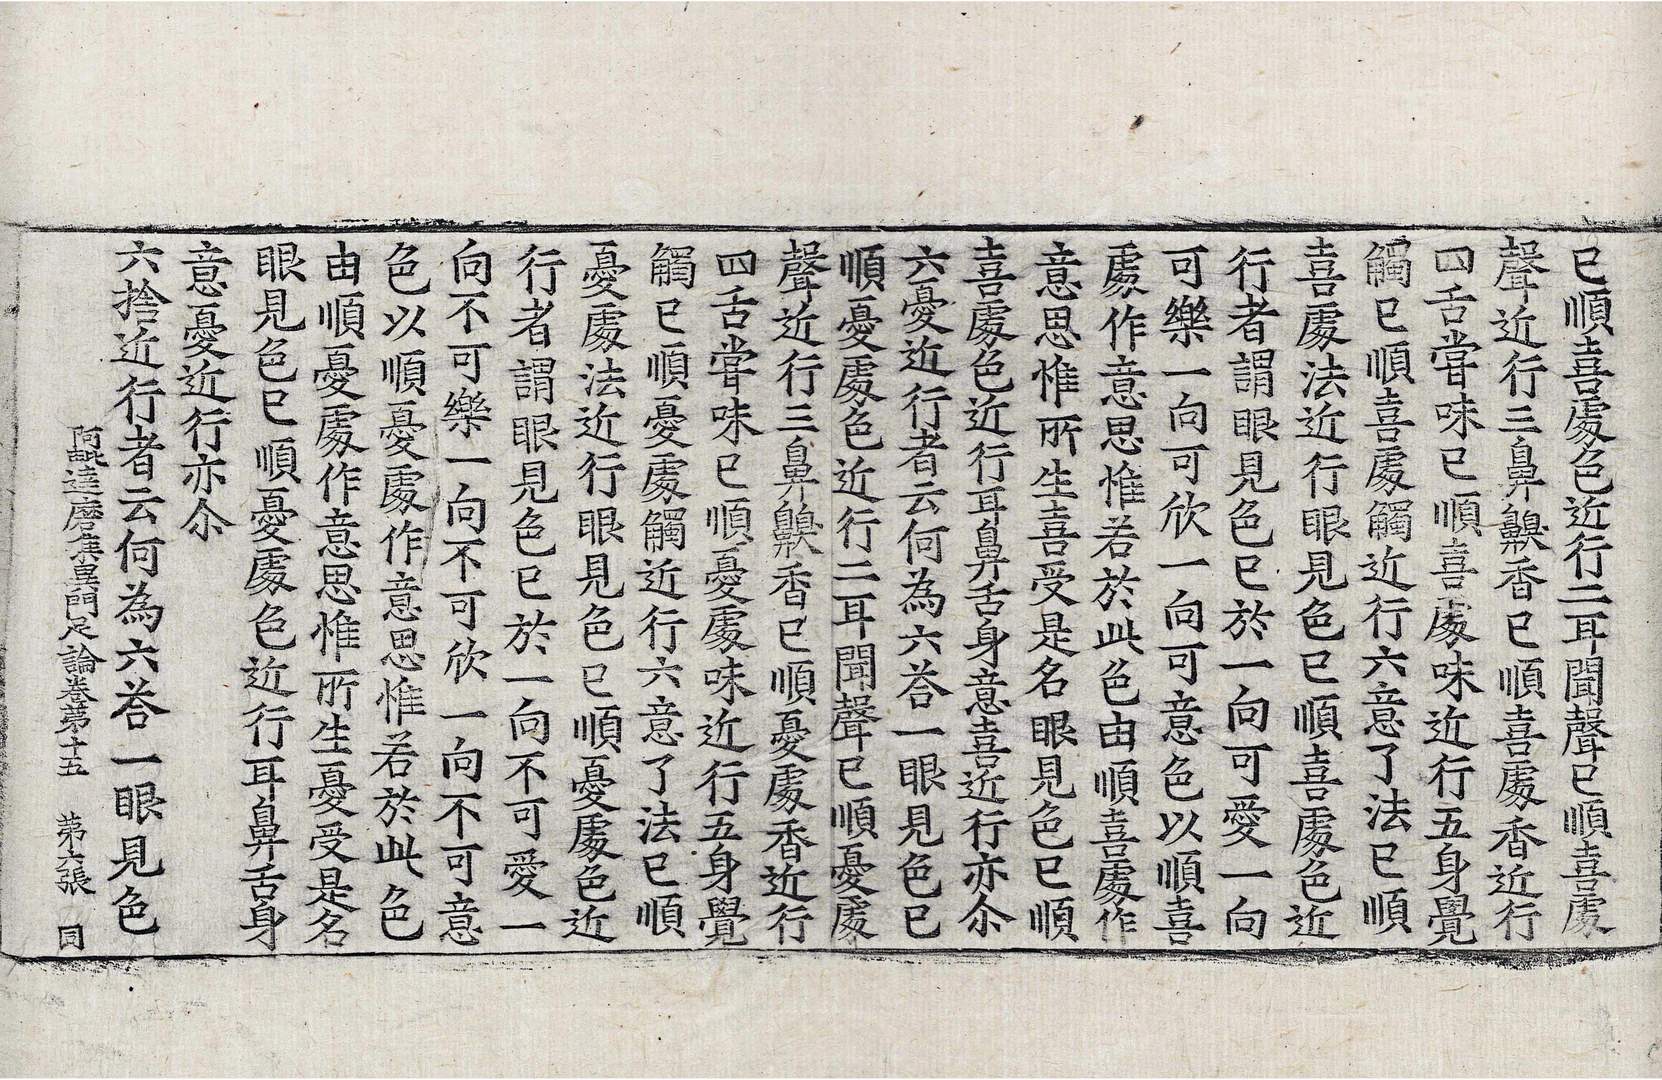 已順喜處色近行二耳聞聲已順喜處
聲近行三鼻齅香已順喜處香近行
四舌甞味已順喜處味近行五身覺
觸已順喜處觸近行六意了法已順
喜處法近行眼見色已順喜處色近
行者謂眼見色已於一向可愛一向
可樂一向可欣一向可意色以順喜
處作意思惟若於此色由順喜處作
意思惟所生喜受是名眼見色已順
喜處色近行耳鼻舌身意喜近行亦尒
六憂近行者云何為六荅一眼見色已
順憂處色近行二耳聞聲已順憂處
聲近行三鼻齅香已順憂處香近行
四舌甞味已順憂處味近行五身覺
觸已順憂處觸近行六意了法已順
憂處法近行眼見色已順憂處色近
行者謂眼見色已於一向不可愛一
向不可樂一向不可欣一向不可意
色以順憂處作意思惟若於此色
由順憂處作意思惟所生憂受是名
眼見色已順憂處色近行耳鼻舌身
意憂近行亦尒
六捨近行者云何為六荅一眼見色
阿毗達磨集異門足論卷第十五 第六張 同